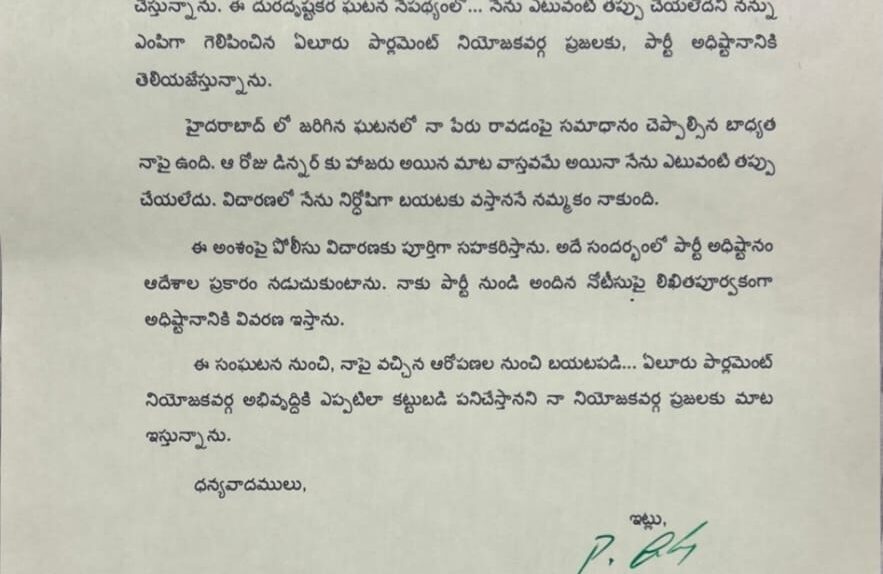 చేస్తున్నాను. ఈ దురదృష్టకర ఘటన నేపథ్యంలో... నేను ఎటువంటి తప్పు చేయలేదని నన్ను
ఎంపిగా గెలిపించిన ఏలూరు పార్లమెంట్ నియోజకవర్గ ప్రజలకు, పార్టీ అధిష్టానానికి
తెలియజేస్తున్నాను.
హైదరాబాద్ లో జరిగిన ఘటనలో నా పేరు రావడంపై సమాధానం చెప్పాల్సిన బాధ్యత
నాపై ఉంది. ఆ రోజు డిన్నర్ కు హాజరు అయిన మాట వాస్తవమే అయినా నేను ఎటువంటి తప్పు
చేయలేదు. విచారణలో నేను నిర్దోషిగా బయటకు వస్తాననే నమ్మకం నాకుంది.
ఈ అంశంపై పోలీసు విచారణకు పూర్తిగా సహకరిస్తాను. అదే సందర్భంలో పార్టీ అధిష్టానం
ఆదేశాల ప్రకారం నడుచుకుంటాను. నాకు పార్టీ నుండి అందిన నోటీసుపై లిఖితపూర్వకంగా
అధిష్టానానికి వివరణ ఇస్తాను.
ఈ సంఘటన నుంచి, నాపై వచ్చిన ఆరోపణల నుంచి బయటపడి... ఏలూరు పార్లమెంట్
నియోజకవర్గ అభివృద్దికి ఎప్పటిలా కట్టుబడి పనిచేస్తానని నా నియోజకవర్గ ప్రజలకు మాట
ఇస్తున్నాను.
ధన్యవాదములు,
ఇట్లు,
P.